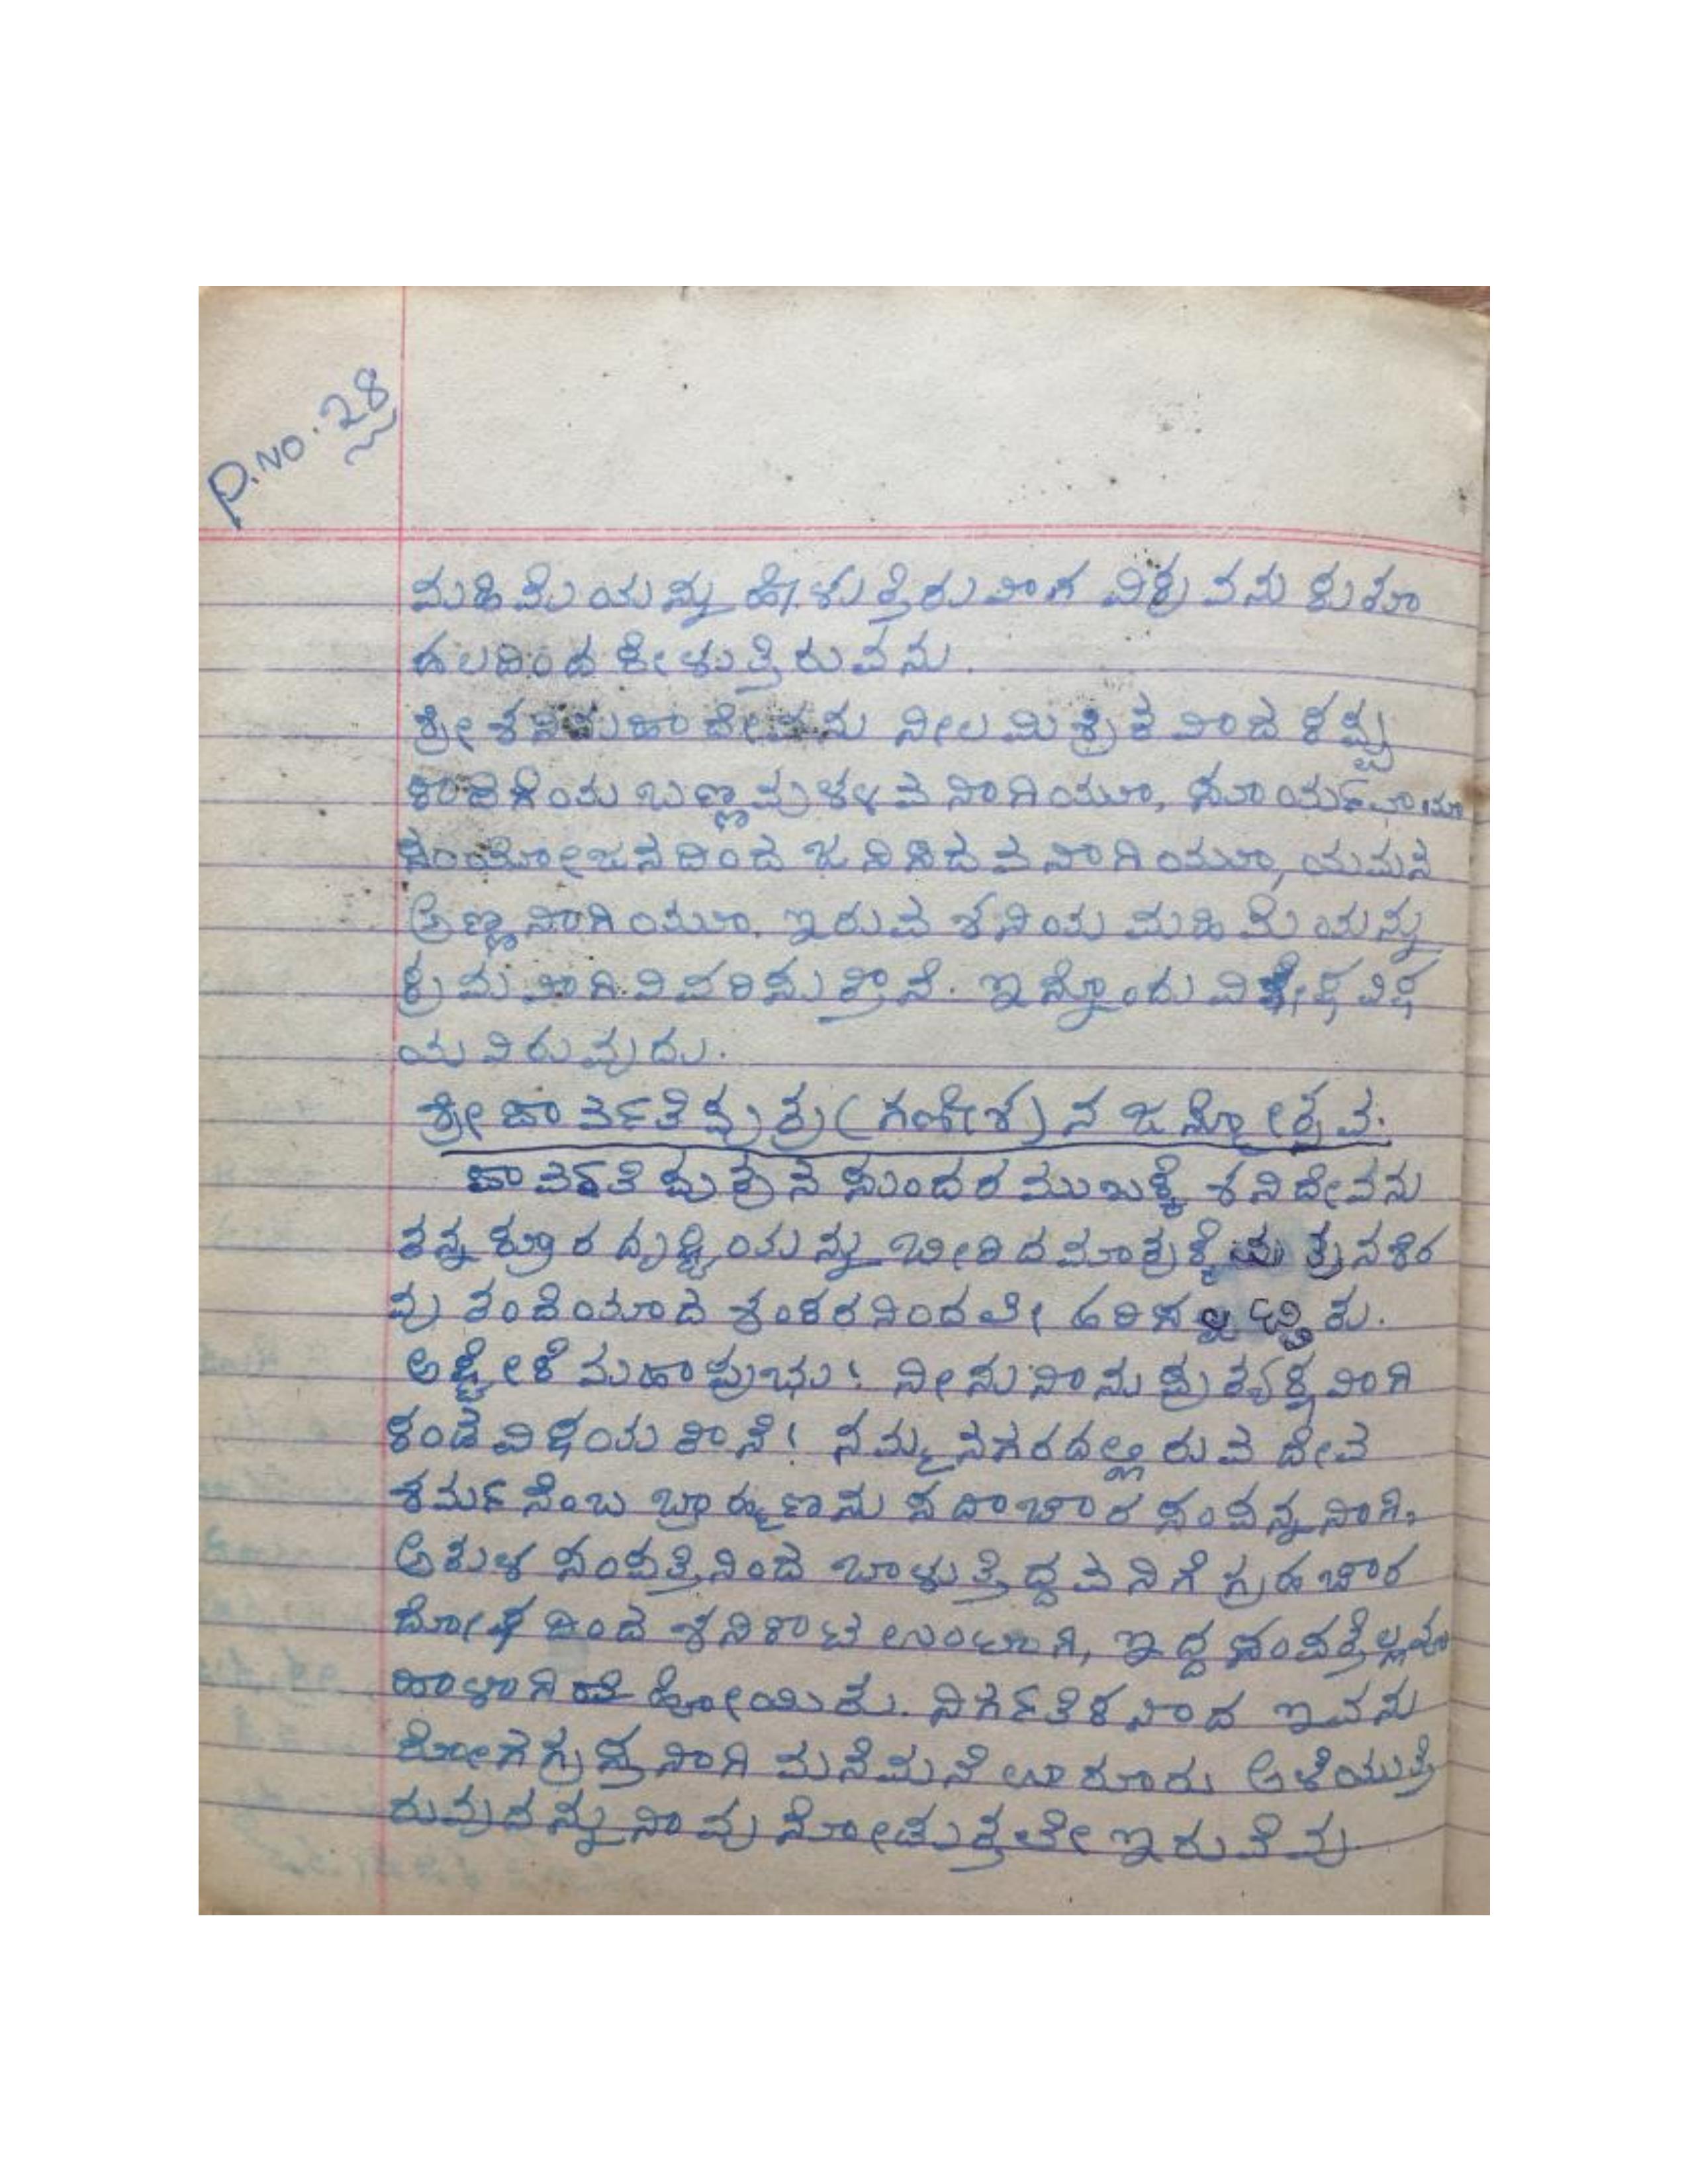 P.NO. 28
ಮಹಿಮೆಯನ್ನು ಹೇಳುತ್ತಿರುವಾಗ ವಿಕ್ರವನು ಕುತೂ
ಹಲದಿಂದ ಕೇಳುತ್ತಿರುವನು.
ಶ್ರೀ ಶನಿಮಹಾದೇವನು ನೀಲಮಿಶ್ರಿತವಾದ ಕಪ್ಪು
ಕಾಡಿಗೆಯ ಬಣ್ಣವುಳ್ಳವನಾಗಿಯೂ, ಸೂರ್ಯಛಾಯಾ
ಸಂಯೋಜನದಿಂದ ಜನಿಸಿದವನಾಗಿಯೂ, ಯಮನ
ಅಣ್ಣನಾಗಿಯೂ. ಇರುವ ಶನಿಯ ಮಹಿಮೆಯನ್ನು
ಕ್ರಮವಾಗಿ ವಿವರಿಸುತ್ತಾನೆ. ಇನ್ನೊಂದು ವಿಶೇಷ ವಿಷ
ಯವಿರುವುದು.
ಶ್ರೀ ಪಾರ್ವತಿ ಪುತ್ರ (ಗಣೇಶ) ನ ಜನ್ಮೋತ್ಸವ.
ಪಾರ್ವತಿ ಪುತ್ರನ ಸುಂದರ ಮುಖಕ್ಕೆ ಶನಿದೇವನು
ತನ್ನ ಕ್ರೂರ ದೃಷ್ಟಿಯನ್ನು ಬೀರಿದ ಮಾತ್ರಕ್ಕೆ ಪುತ್ರನ ಶಿರ
ವು ತಂದೆಯಾದ ಶಂಕರನಿಂದಲೇ ಹರಿಸಲ್ಪಟ್ಟಿತು.
ಅಷ್ಟೇಕೆ ಮಹಾಪ್ರಭು! ನೀನು ನಾನು ಪ್ರತ್ಯಕ್ಷವಾಗಿ
ಕಂಡ ವಿಷಯ ತಾನೆ! ನಮ್ಮ ನಗರದಲ್ಲಿರುವ ದೇವ
ಶರ್ಮನೆಂಬ ಬ್ರಾಹ್ಮಣನು ಸದಾಚಾರ ಸಂಪನ್ನನಾಗಿ,
ಅತುಳ ಸಂಪತ್ತಿನಿಂದ ಬಾಳುತ್ತಿದ್ದವನಿಗೆ ಗ್ರಹಚಾರ
ದೋಷದಿಂದ ಶನಿಕಾಟ ಉಂಟಾಗಿ, ಇದ್ದ ಸಂಪತ್ತೆಲ್ಲವೂ
ಹಾಳಾಗಿ ಹೋಯಿತು. ನಿರ್ಗತಿಕನಾದ ಇವನು
ರೋಗಗ್ರಸ್ತನಾಗಿ ಮನೆಮನೆ ಊರೂರು ಅಲೆಯುತ್ತಿ
ರುವುದನ್ನು ನಾವು ನೋಡುತ್ತಲೇ ಇರುತ್ತೇವು